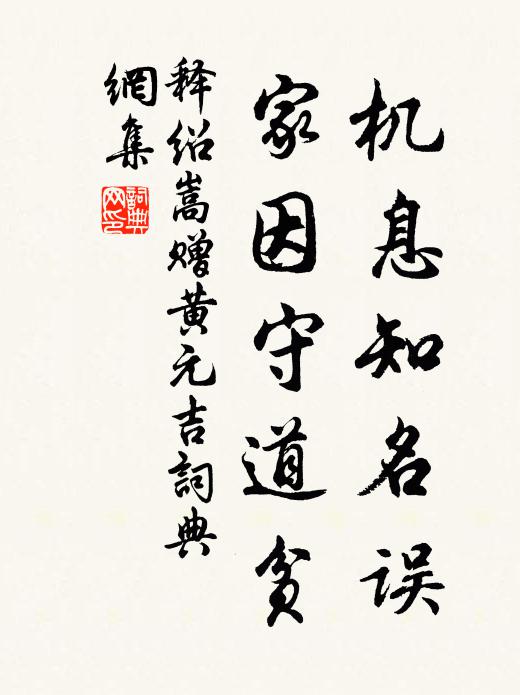 机息知名误
家因守道贫
释绍嵩赠黄元吉詞典
網集
詞典
网印